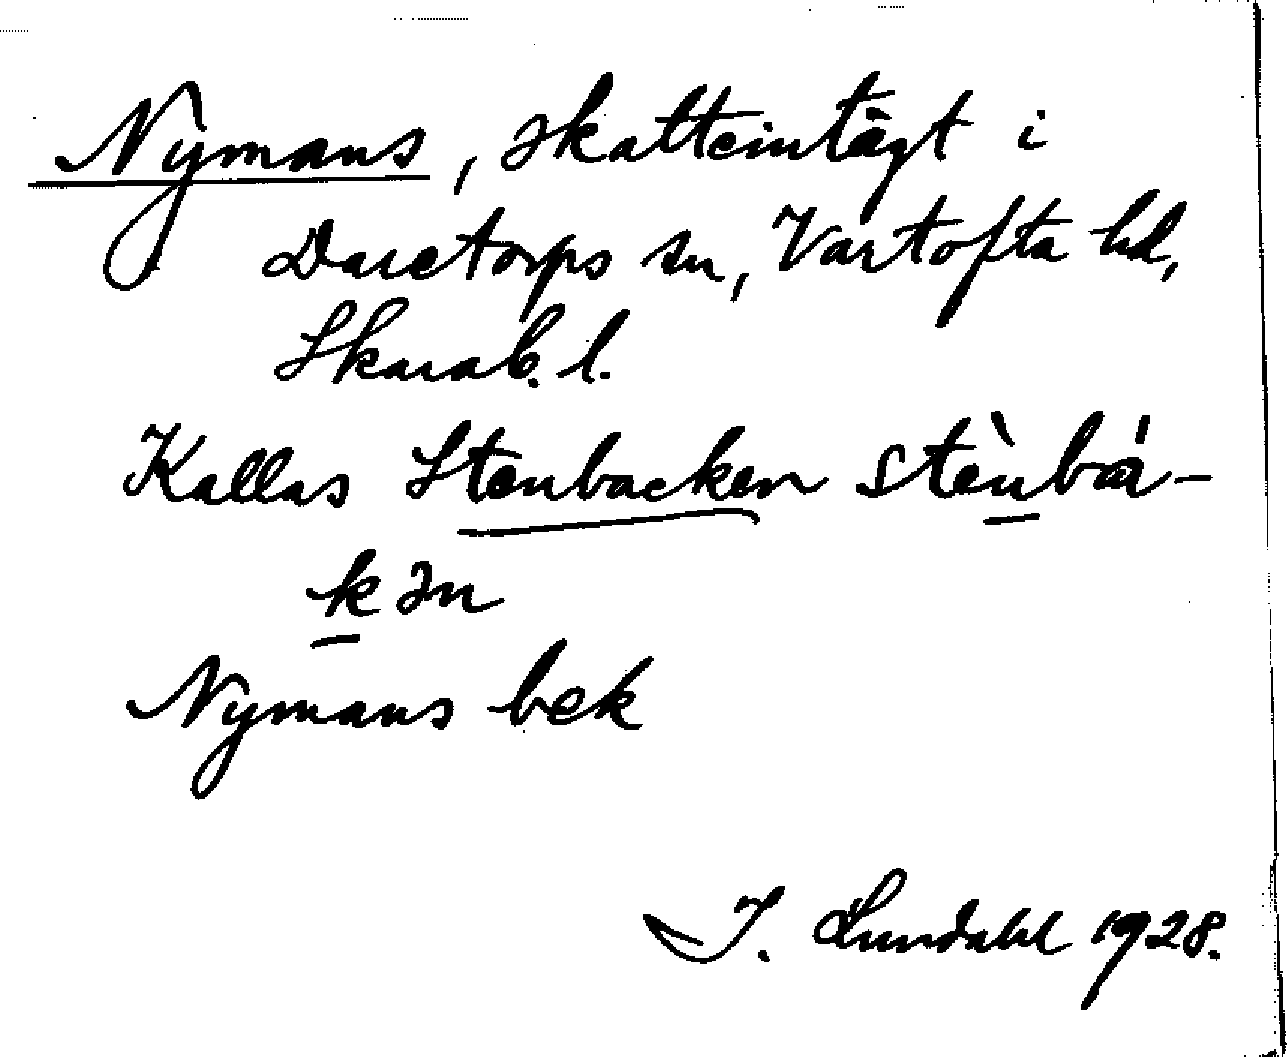 Nymans, skatteintägt i
Daretorps sn, Vartofta hd,
Skarab. l.
Kallas Stenbacken stènbá-
kən
Nymans bek
I. Lundahl 1928.